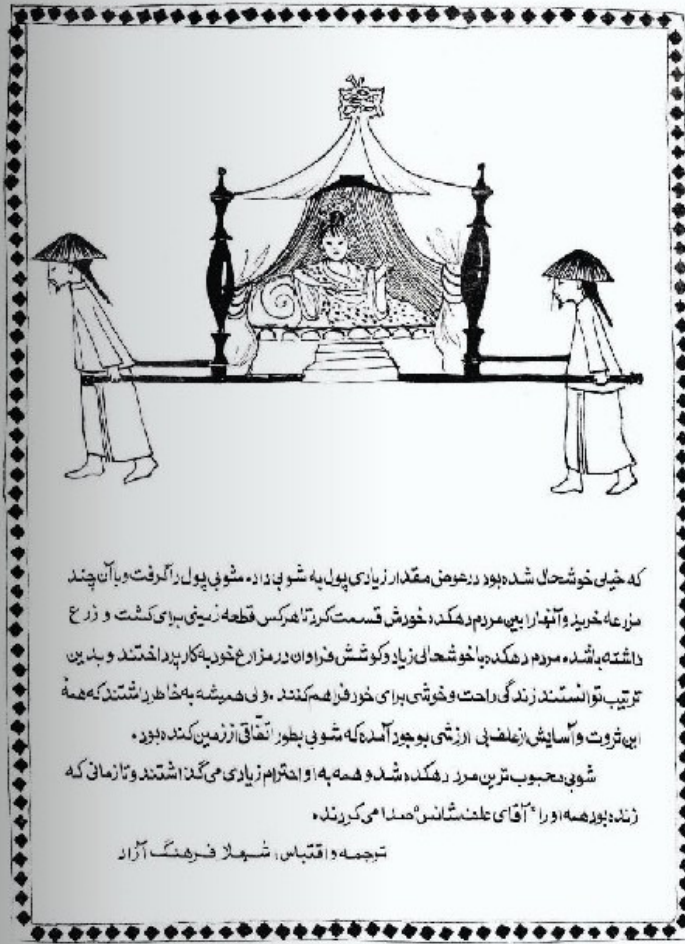 که خیلی خوشحال شده بود درعوض مقدار زیادی پول به شوبی داد. شوبی پول را گرفت و با آن چند
مزرعه خرید و آنها را بین مردم دهکده خودش قسمت کرد تا هرکس قطعه زمینی برای کشت و زرع
داشته باشد. مردم دهکده با خوشحالی زیاد و کوشش فراوان در مزارع خود به کار پرداختند و بدین
ترتیب توانستند زندگی راحت و خوشی برای خود فراهم کنند. ولی همیشه به خاطر داشتند که همهٔ
این ثروت و آسایش از علف بی ارزشی بوجود آمده که شوبی بطور اتفاقی از زمین کنده بود.
شوبی محبوب ترین مرد دهکده شد و همه به او احترام زیادی می گذاشتند و تا زمانی که
زنده بود همه او را "آقای علف شانس" صدا می کردند.
ترجمه و اقتباس: شهلا فرهنگ آزاد